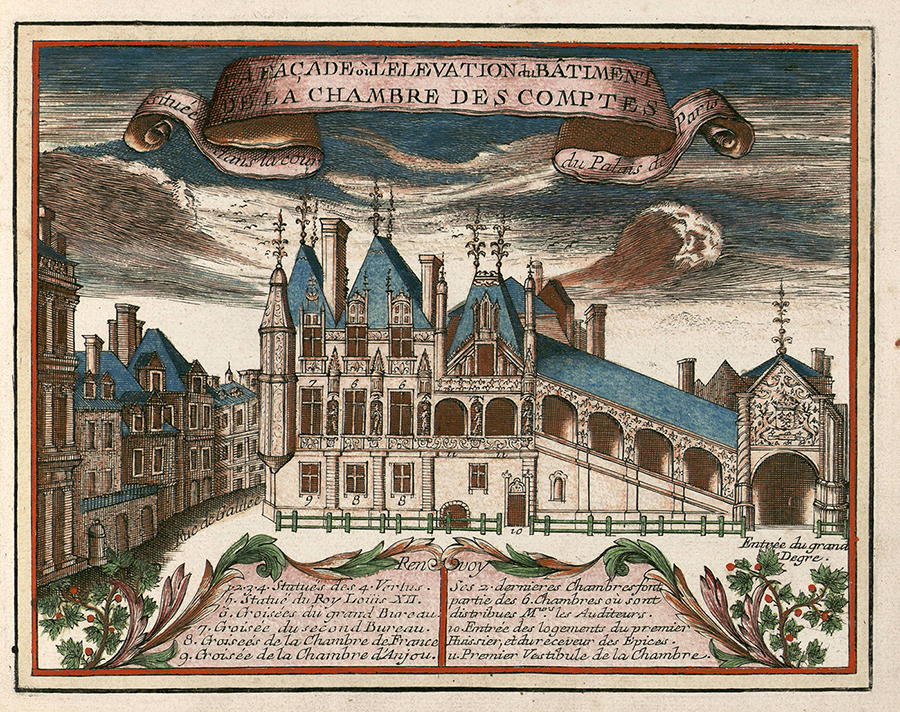 LA FAÇADE où L'ELEVATION du BÂTIMENT
DE LA CHAMBRE DES COMPTES,
située
dans la cour
du Palais de
Paris
7 6 6
11 11 11
9 8 8
10
Rue de Galilée
Entrée du grand
Degre.
Renvoy
1.2.3.4. Statuës des 4. Vertus.
5. Statuë du Roy Loüis XII.
6. Croisées du grand Bureau.
7. Croisée du second Bureau.
8. Croiseés de la Chambre de France
9. Croisée de la Chambre d'Anjou.
Ses 2. dernieres Chambres font
partie des 6. Chambres ou sont
distribues Mrs. les Auditeurs.
10 Entrée des logements du premier
Huissier, et du receveur des Epices.
11. Premier Vestibule de la Chambre.